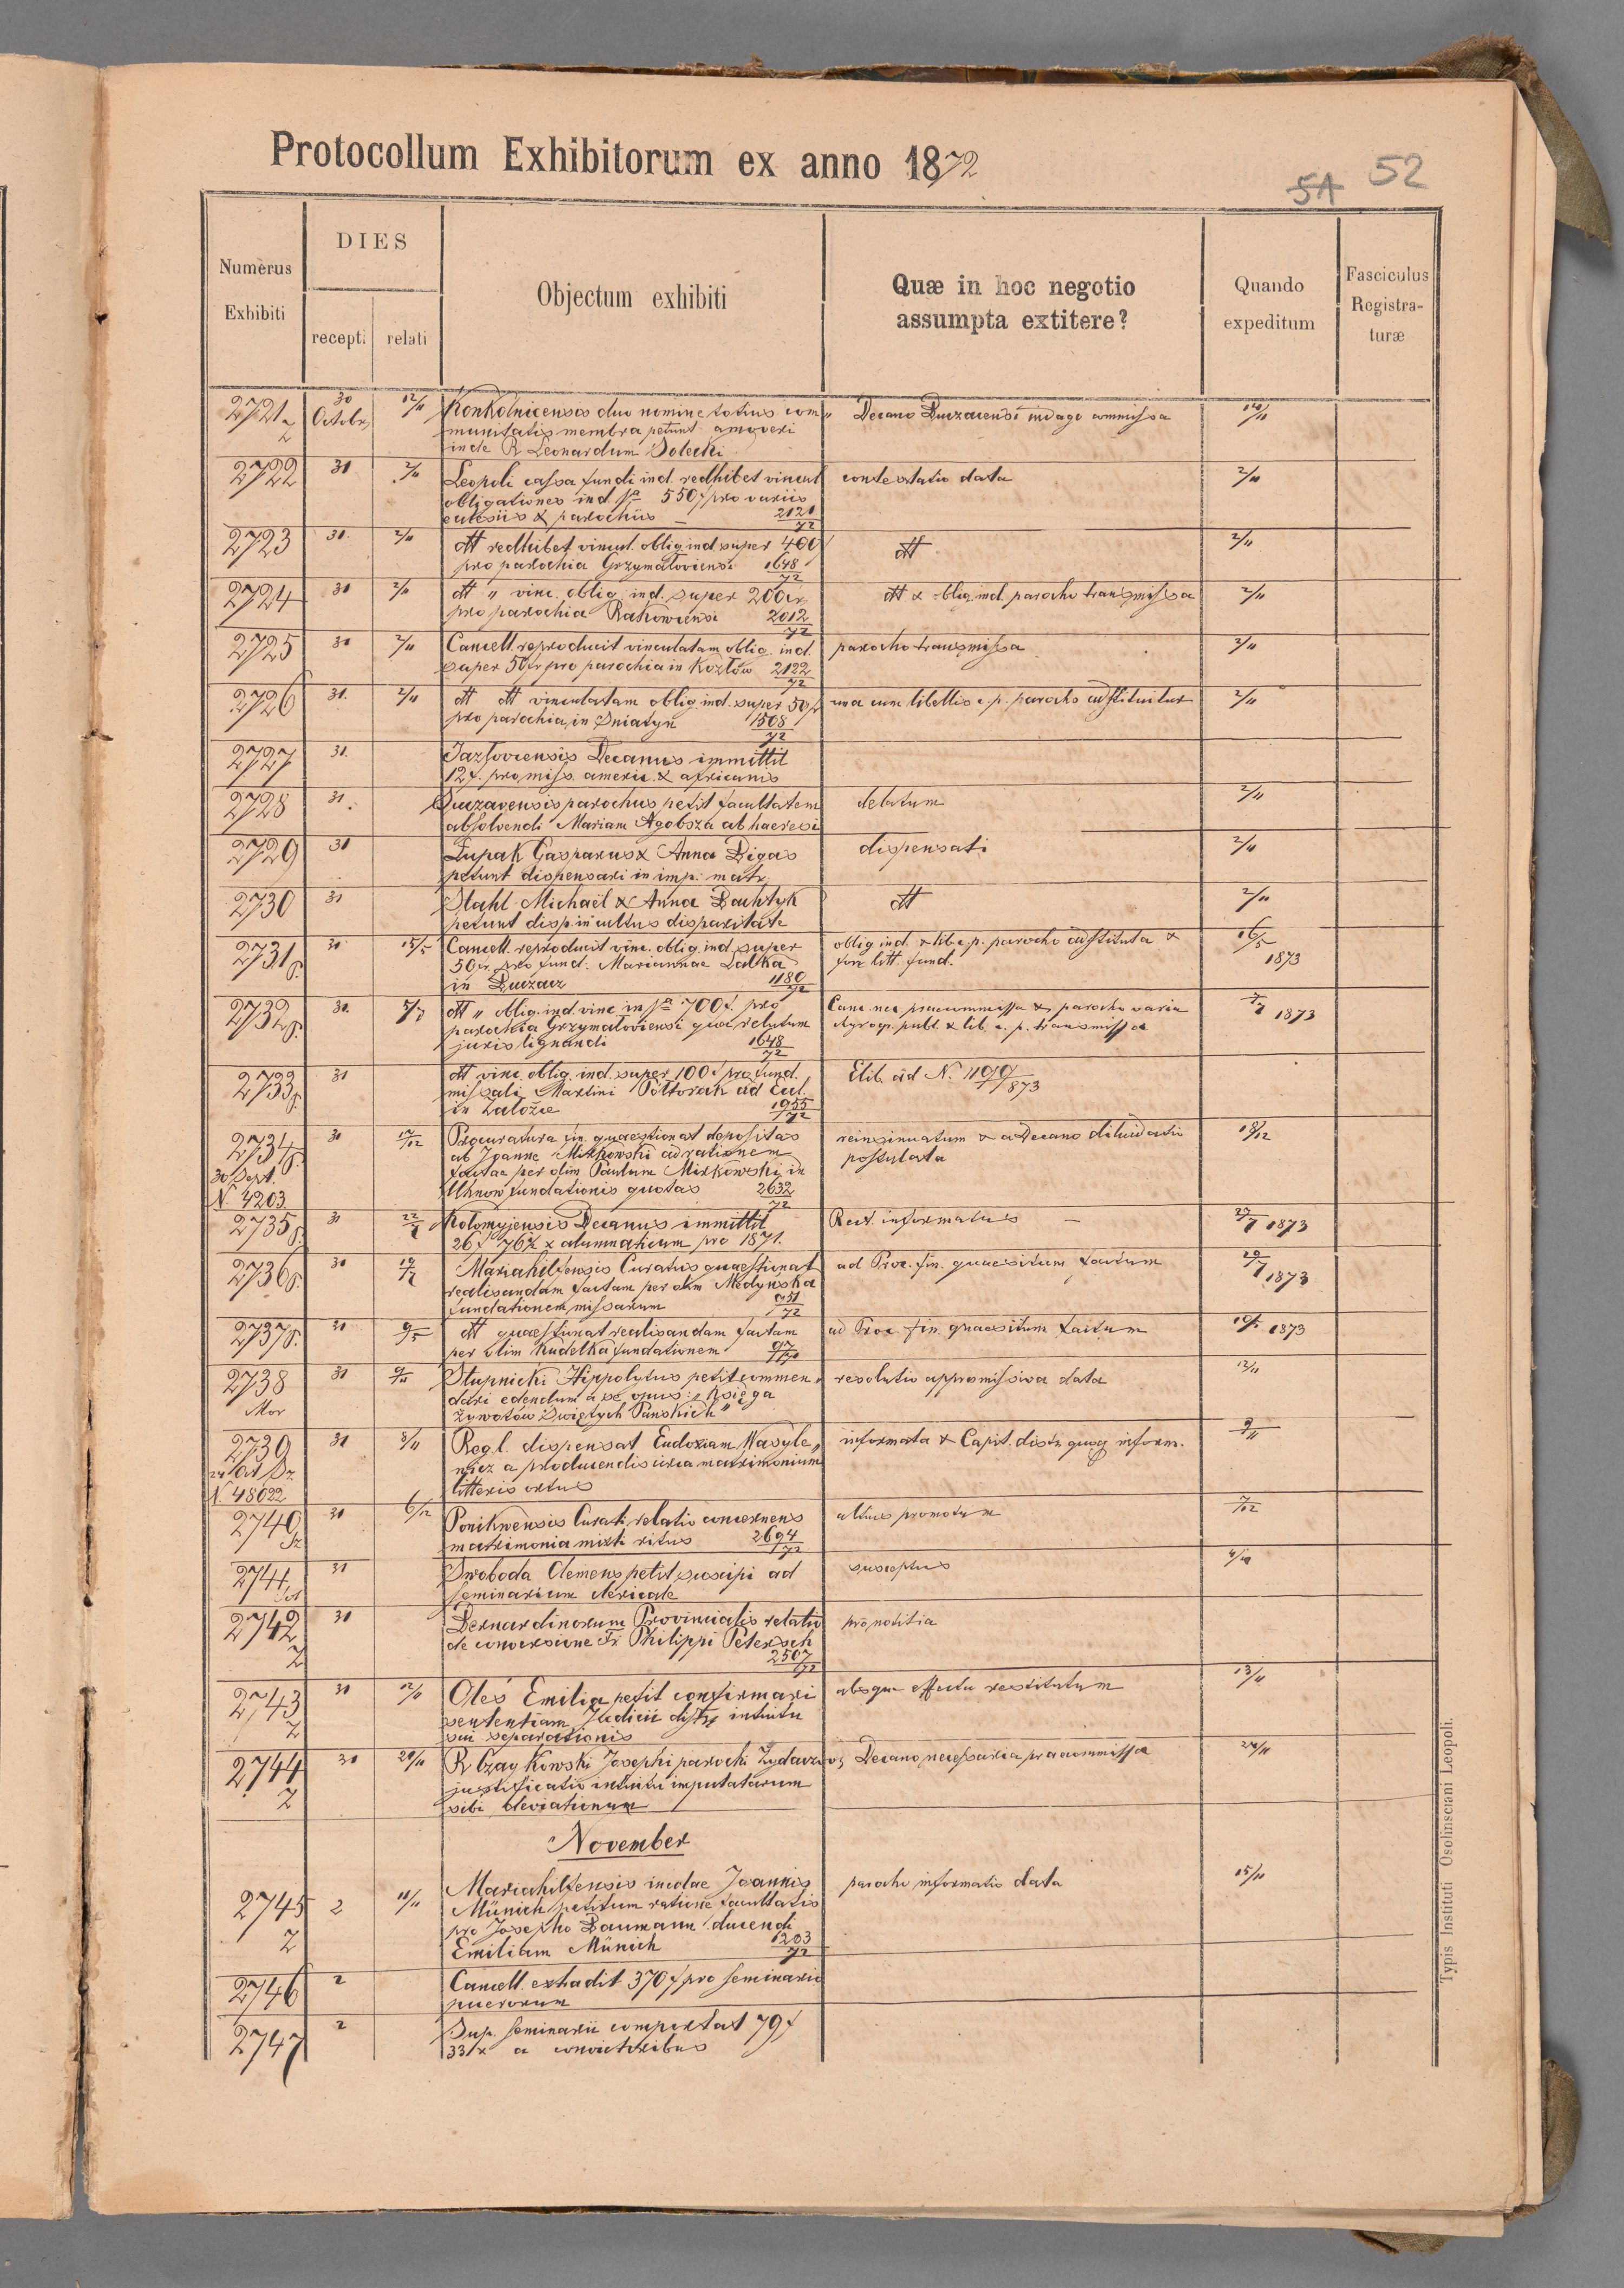 Protocollum Exhibitorum ex anno 1872
51 52
Numerus Exhibiti
DIES
recepti
relati
Objectum exhibiti
Quæ in hoc negotio assumpta extitere?
Quando expeditum
Fasciculus Registraturæ
2721 30 Octobr 12/11 Konkolnicensis duo nomine totius com„ Decano Buczacensi indago commissa 14/11
z munitatis membra petunt amoveri
inde R Leonardum Solecki
2722 31 2/11 Leopoli cassa fundi ind. redhibet vincul contestatio data 2/11
obligationes ind. 550 f pro variis
eccesiis & parochiis — 2121/72
2723 31 2/11 dtt redhibet vincul. oblig ind super 400 f dtt 2/11
pro parochia Grzymałoviensi 1648/72
2724 31 2/11 dtt „ vinc. oblig. ind. super 200 dtt & oblig. ind. parocho transmissa 2/11
pro parochia Rakowiensi 2012/72
2725 31 2/11 Cancell. reproducit vinculatam oblig. ind. parocho transmissa 2/11
super 50 fr pro parochia in Kozłów 2122/72
2726 31. 2/11 dtt dtt vinculatam oblig. ind. super 50 f una cum libellis c. p. parocho adstituitur 2/11
pro parochia in Sniatyn 1508/72
2727 31. Jazłoviensis Decanus immittit
12 f. pro miss. americ. & africanis
2728 31. Buczacensis parochus petit facultatem delatum 2/11
absolvendi Mariam Agobsza ab haeresi
2729 31 Łupak Gasparus & Anna Bigas dispensati 2/11
petunt dispensari in imp. matr.
2730 31 Stahl Michaël & Anna Bachtyk dtt 2/11
petunt disp. in cultus disparitate
2731 p. 30 15/5 Cancell. reproducit vinc. oblig. ind super oblig ind. & lib. c. p. parocho adstituta & 16/5 1873
50 fr. pro fund. Mariannae Lalka for. litt. fund.
in Buczacz 1180/72
2732 p. 30. 5/7 dtt „ oblig. ind. vinc in 700 f. pro Canc. nea praecommissa & parocho varia 7/7 1873
parochia Grzymałoviensi quae relutum publ. & lib. c. p. transmissa
juris lignandi 1648/72
2733 p. 31 dtt vinc. oblig. ind. super 100 f pro fund. Elib. ad N. 1199/873
missali Martini Połtorak ad Eccl.
in Załoźce 1955/72
2734 p. 30 17/12 Procuratura fin. quaestionat depositas reinsinuatum & a Decano dilucidatio 18/12
30 Sept. ab Joanne Mirkowski ad rationem postulata
N. 4203 factae per olim Paulum Mirkowski in
Uhnow fundationis quotas 2632/72
2735 p. 31 22/7 Kołomyjensis Decanus immittit Rect. informatus — 27/7 1873
26 f 76½ x alumnaticum pro 1871.
2736 p. 30 19/7 Mariahilfensis Curatus quaestionat ad Proc. fin. quaesitum factum 29/7 1873
realisandam factam per olim Medynska
fundationem missarum 951/72
2737 p. 31 9/5 dtt quaestionat realisandam factam ad Proc. fin. quaesitum factum 10/5 1873
per olim Kudelka fundationem
2738 31 9/11 Stupnicki Hippolytus petit commen„ resolutio appromissiva data 12/11
Mor dari edendum a se opus: „Księga
żywotów Świętych Pańskich"
2739 31 8/11 Reg. l. dispensat Eudoxiam Wasyle„ informata & Capit. distr. quoq inform. 9/11
wicz a producendis circa matrimonium
N. 48622 litteris ortus
2740 31 6/12 Ponikwensis Curati relatio concernens altius promotum 7/12
matrimonia mixti ritus 2694/72
2741 31 Swoboda Clemens petit suscipi ad susceptus 4/11
seminarium clericale
2742 31 Bernardinorum Provincialis relatio pro notitia
z de conversione Fr Philippi Petersch
2507/72
2743 31 12/11 Oleś Emilia petit confirmari absque effectu restitutum 13/11
z sententiam Judicii distr. intuitu
sui separationis
2744 30 20/11 R Czaykowski Josephi parochi Żydaczov, Decano necessaria praecommissa 20/11
z justificatio intuitu imputatarum
sibi deviationum
November
2745 2 11/11 Mariahilfensis incolae Joannis parocho informatio data 15/11
z Münich petitum ratione facultatis
pro Josepho Baumann ducendi
Emiliam Münich 1203/72
2746 2 Cancell. extradit 370 f pro seminario
puerorum
2747 2 Sup. seminarii comportat 79 f
33 x a convictoribus
Typis Instituti Osolinsciani Leopoli.